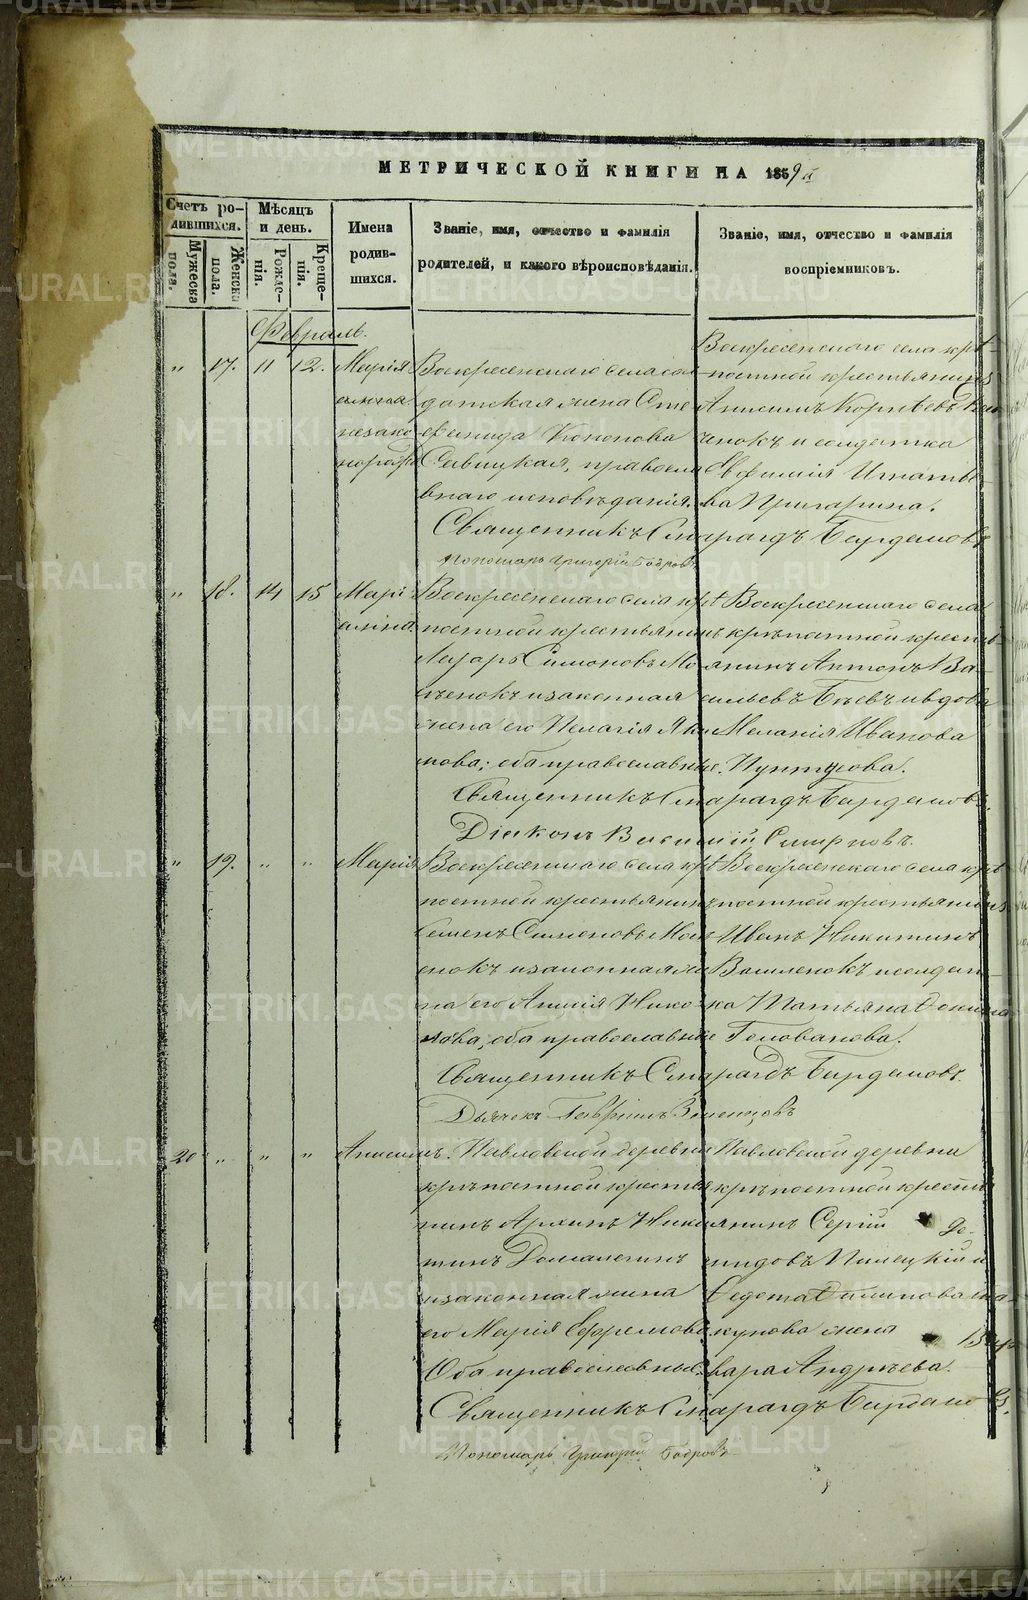 МЕТРИЧЕСКОЙ КНИГИ НА 1859й
Счетъ родившихся.
Мѣсяцъ и день.
Имена родившихся.
Званіе, имя, отчество и фамилія родителей, и какого вѣроисповѣданія.
Званіе, имя, отчество и фамилія воспріемниковъ.
Мужеска пола.
Женска пола.
Рожденія.
Крещенія.
Февраль.
„ 17. 11 12. Марія
незако
Воскресенскаго села сол
датская жена Сте
фанида Кононова
Савицкая, правосла
внаго исповѣданія.
Воскресенскаго села крѣ
постной крестьянинъ
Анисимъ Корнѣевъ
и солдатка
Евфимія Игнатье
ва Пригарина.
Священникъ Смарагдъ Бирдемовъ
Пономарь Григорій Бобровъ
„ 18. 14 15 Марі
Воскресенскаго села крѣ
постной крестьянинъ
Лазарь Симоновъ Мо
ченокъ и законная
жена его Пелагія Яки
мова; оба православные.
Воскресенскаго села
крѣпостной кресть
янинъ Антонъ Ва
сильевъ и вдова
Меланія Иванова
Священникъ Смарагдъ Бирдемовъ.
Діаконъ Василій Смирновъ.
„ 19. „ „ Марія
Воскресенскаго села крѣ
постной крестьянинъ
Семенъ Симоновъ Моч
енокъ и законная же
на его Анисія Нико
лова; оба православные
Воскресенскаго села крѣ
постной крестьянинъ
Иванъ Никитинъ
и солдат
ка Татьяна
Голованова.
Священникъ Смарагдъ Бирдемовъ.
Дьячекъ Гавріилъ
20 „ „ „ Анисимъ.
Павловской деревни
крѣпостной кресть
нинъ Архипъ Ники
тинъ
и законная жена
его Марія Ефремова
Оба православные.
Павловской деревни
крѣпостной кресть
янинъ Сергій Де
мидовъ и
Федота Филипова
кунова жена Вар
вара Андреева.
Священникъ Смарагдъ Бирдемовъ.
Пономарь Григорій Бобровъ
METRIKI.GASO-URAL.RU